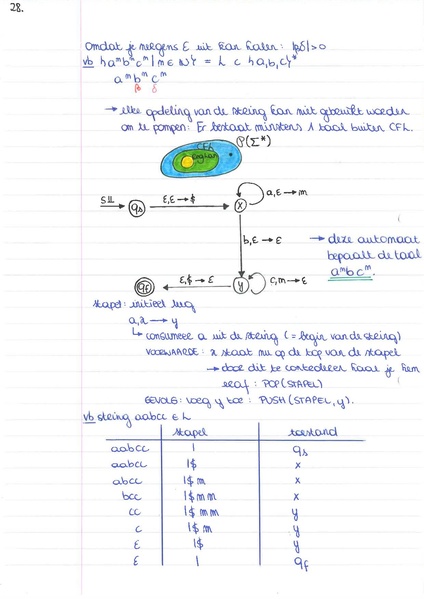 28.
Omdat je nergens ε uit kan halen: |βδ|>0
vb {aᵐbᵐcᵐ | m ∈ ℕ} = L ⊂ {a,b,c}*
aᵐbᵐcᵐ
β δ
→ elke opdeling van de string kan niet gebruikt worden
om te pompen: Er bestaat minstens 1 taal buiten CFL.
P(Σ*)
CFL
RegLan
SII
qs
ε,ε → $
x
a,ε → m
b,ε → ε
→ deze automaat
bepaalt de taal
aᵐbcᵐ.
qf
ε,$ → ε
y
c,m → ε
stapel: initieel leeg
a,x → y
↳ consumeer a uit de string (= begin van de string)
VOORWAARDE: x staat nu op de top van de stapel
→ door dit te controleren haal je hem
eraf: POP(STAPEL)
GEVOLG: voeg y toe: PUSH(STAPEL, y).
vb string aabcc ∈ L
stapel toestand
aabcc | qs
aabcc |$ x
abcc |$ m x
bcc |$ m m x
cc |$ m m y
c |$ m y
ε |$ y
ε | qf